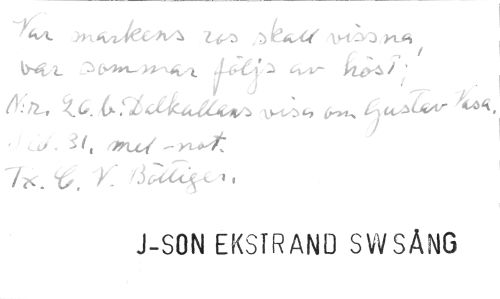 Var markens ros skall vissna,
var sommar följs av höst;
N:r. 26.b. Dalkullans visa om Gustav Vasa.
Sid. 31. mel-not.
Tx. C. V. Böttiger.
J-SON EKSTRAND SWSÅNG